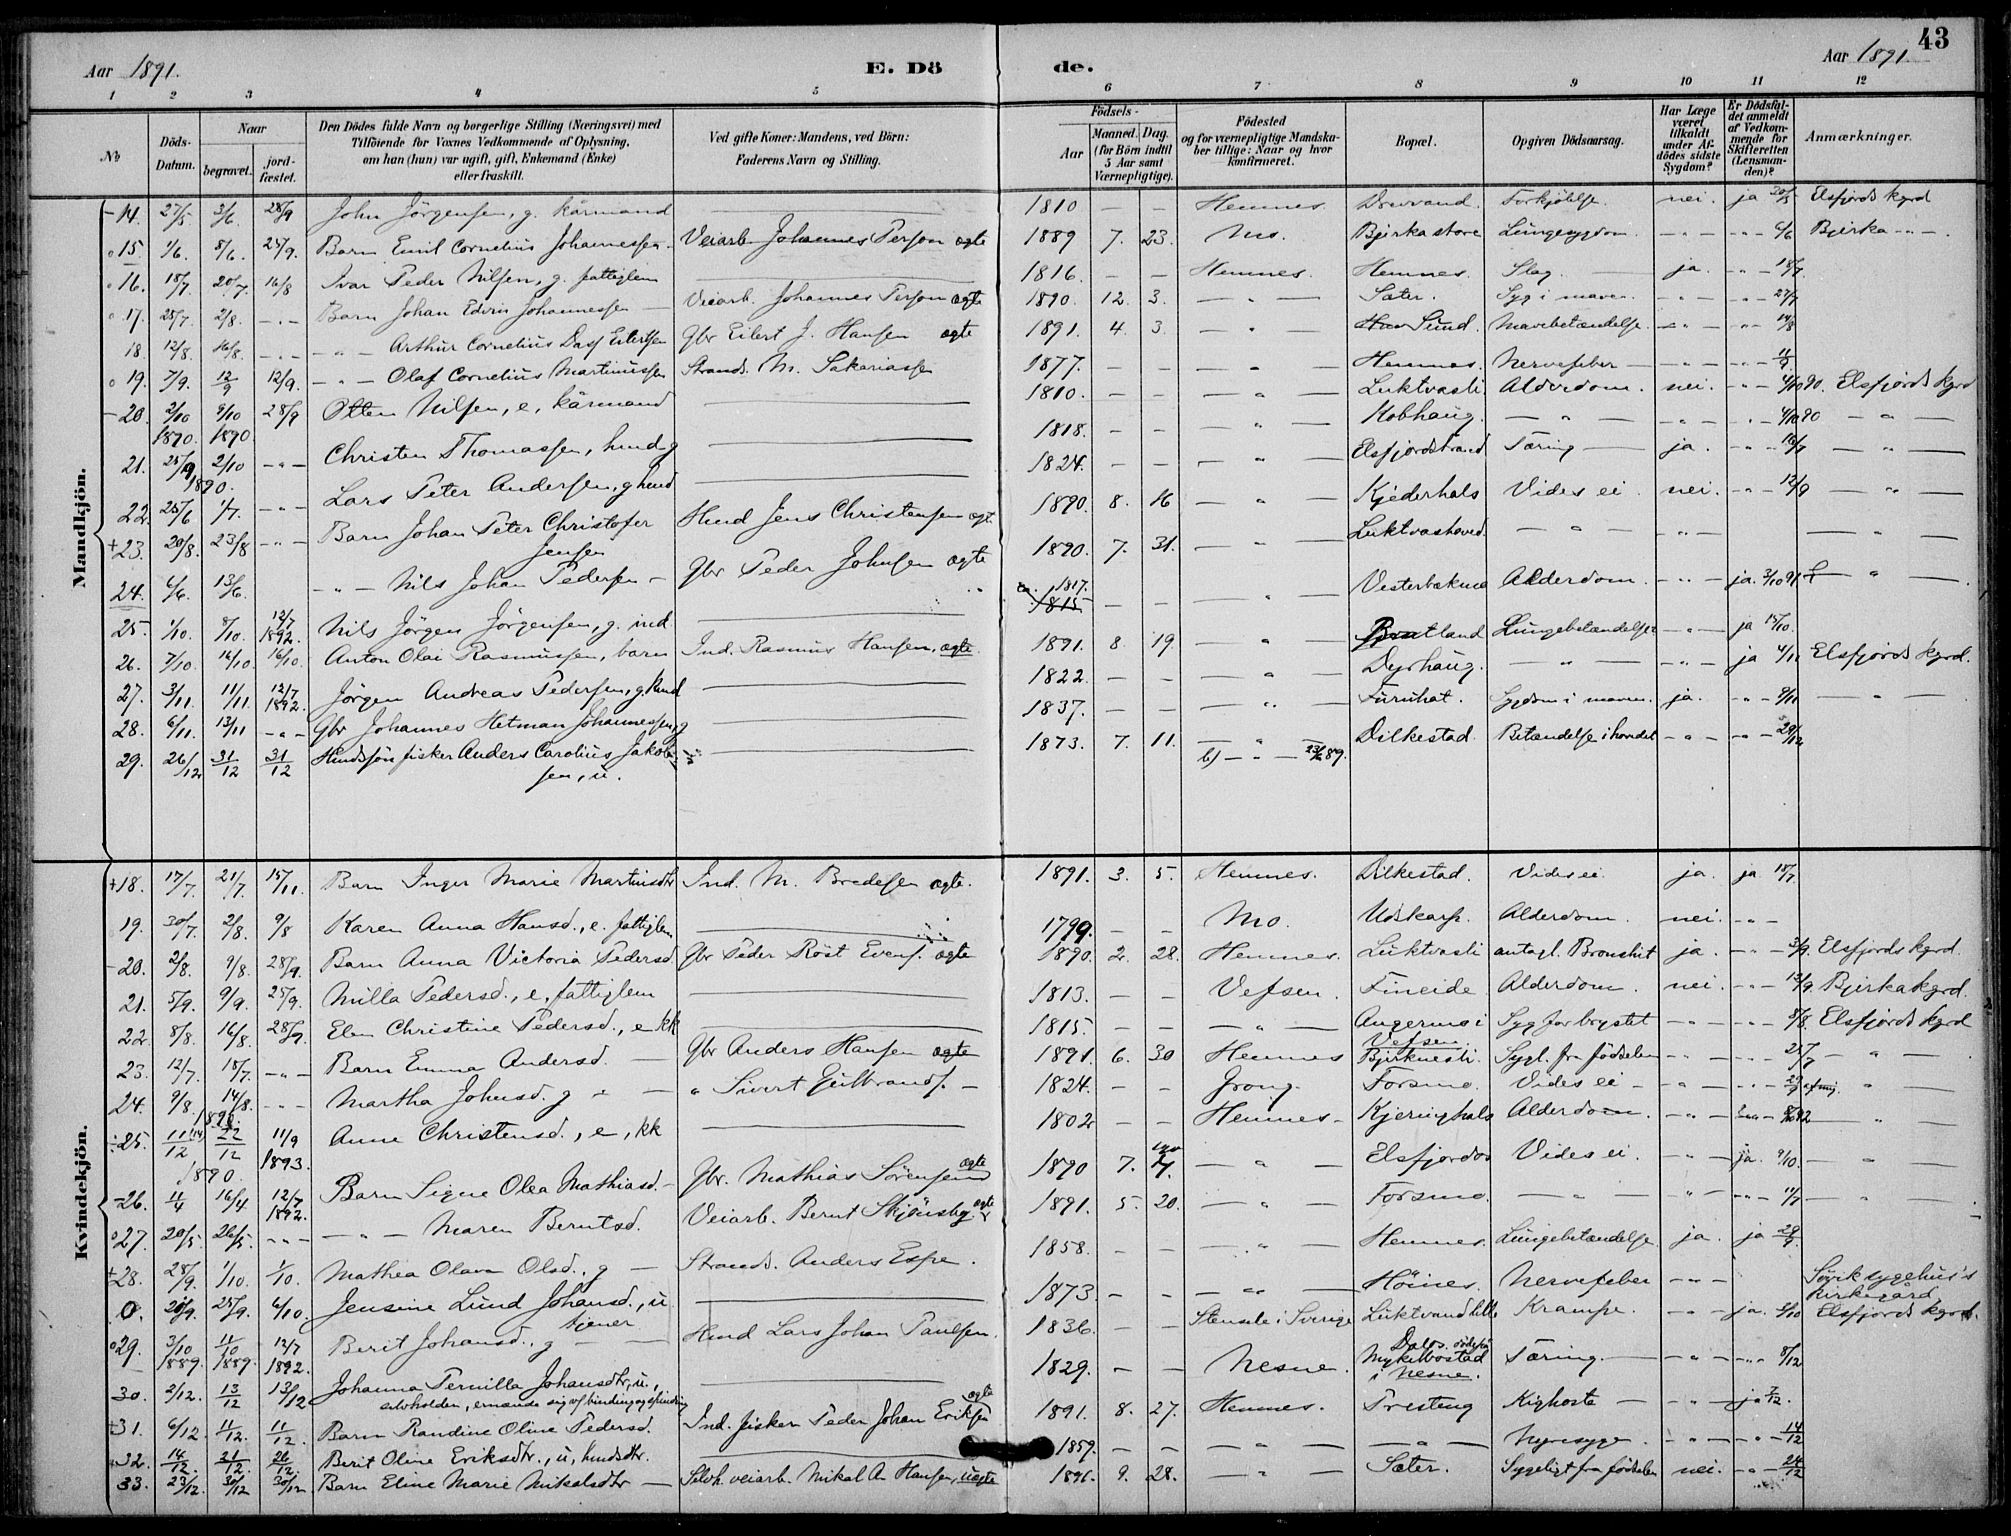 43
Aar 1891. E. Dö de. Aar 1891
1 2 3 4 5 6 7 8 9 10 11 12
No Döds-Datum. Naar begravet. jord-fæstet. Den Dödes fulde Navn og borgerlige Stilling (Næringsvei) med Tilföiende for Voxnes Vedkommende af Oplysning, om han (hun) var ugift, gift, Enkemand (Enke) eller fraskilt. Ved gifte Koner: Mandens, ved Börn: Faderens Navn og Stilling. Födsels- Aar Maaned. Dag. (for Börn indtil 5 Aar samt Værnepligtige). Födested og for værnepligtige Mandskaber tillige: Naar og hvor konfirmeret. Bopæl. Opgiven Dödsaarsag. Har Læge været tilkaldt under Afdödes sidste Sygdom? Er Dödsfaldet anmeldt af Vedkommende for Skifteretten (Lensmanden)? Anmærkninger.
Mandkjön.
14. 27/5 3/6 28/9 John Jörgensen, g. kårmand 1810 — — Hemnes. Drevvand. Forkjölelse. nei. ja Elsfjords kgrd
15. 1/6. 8/6. 25/9. Barn Emil Cornelius Johannessen Veiarb. Johannes Person ægte 1889 7. 23. Mo. Bjerka store Lungesygdom - " - - " - 6/6 Bjerka - " -
16. 18/7 20/7. 16/8 Ivar Peder Nilsen, g. fattiglem 1816. — — Hemnes. Hemnes. Slag. ja. - " - 18/7
17. 28/7 2/8. - " - Barn Johan Edvin Johannessen Veiarb. Johannes Person ægte 1890. 12. 3. — " — Sæter. Syg i maven. - " - - " - 27/7
18. 12/8. 16/8. - " - - " - Arthur Cornelius Dass Eilertsen Gbr Eilert J. Hansen ægte 1891. 4. 3. — " Sund. Mavebetændelse - " - - " - 14/8
19. 7/9. 12/9 12/9. - " - Olaf Cornelius Martinussen Strands. M. Sakariassen 1877. — — " Hemnes. Nervefeber - " - - " - 11/9
20. 2/10 1890. 9/10 1890. 28/9 Otten Nilsen, e, kårmand 1810. — — — " — Luktvasli Alderdom. nei. - " - 4/10 90. Elsfjords kgrd
21. 25/9 1890. 2/10 - " - Christen Thomassen, husm. g 1818. — — — " — Kobhaug. — " — - " - - " - 4/10 90 — " —
22. 25/6 1/7. - " - Lars Peter Andersen, g husm 1824. — — " — Elsfjordstrand Tæring ja. - " - 16/7 — " —
23. 20/8. 23/8 - " - Barn Johan Peter Christofer Jensen Husmd Jens Christensen ægt. 1890. 8. 16 — " — Kjederhals Vides ei. nei. - " - 12/9 — " —
24. 6/6. 13/6. - " - Nils Johan Pedersen Gbr Peder Johnsen ægte 1890. 7. 31. — " — Luktvashoved. — " — - " - — " —
25. 1/10. 8/10. 12/7 1892. Nils Jörgen Jörgensen, g. ind. ca. 1817. 1815 — — — " — Alderdom. - " - ja. 3/10 91. — " —
26. 7/10. 16/10. 16/10. Anton Olai Rasmussen, barn Ind. Rasmus Hansen, ægte. 1891. 8. 19. " Bratland Lungebetændelse - " - ja 15/10.
27. 3/11. 11/11. 12/7 1892. Jörgen Andreas Pedersen, g. husmd 1822. — — — " — Dyrhaug. — " — ja 4/11 Elsfjords kgrd.
28. 6/11. 13/11 - " - Gbr Johannes Hetman Johannessen, g 1837. — — — " — Furuhat. Sygdom i maven. ja. - " - 9/11 — " —
29. 26/12 31/12 31/12 Husmdsön fisker Anders Carolius Jakobsen, u. 1873. 7. 11. — " — b) — " — 89. Dilkestad. Betændelse i hovdet - " - - " - 29/12
Kvindekjön.
18. 17/7. 21/7. 15/11. Barn Inger Marie Martinsdtr Ind. M. Bredesen ægte. 1891. 3. 5. Hemnes. Dilkestad. Vides ei. ja. ja 18/7
19. 30/7. 2/8. 9/8 Karen Anna Hansd., e. fattiglem 1799. — — Mo. Udskarp. Alderdom. nei. - " -
20. 2/8. 9/8. 28/9. Barn Anna Victoria Pedersd. Gbr Peder Röst Evens. ægte 1890. 2. 28. Hemnes. Luktvasli antagl. Bronshit ja. - " - 3/9. Elsfjords kgrd.
21. 5/9. 9/9. 25/9. Milla Pedersd., e, fattiglem 1813. — — Vefsen. Fineide. Alderdom. nei. - " - 13/9. Bjerka kgrd.
22 8/8. 16/8. 28/9. Elen Christine Pedersd., e kk 1815. — — — " — Angermo i Vefsen. Syg for brystet - " - - " - 8/8. Elsfjords kgrd
23. 12/7. 18/7. - " - Barn Emma Andersd. Gbr Anders Hansen ægte 1891. 6. 30 Hemnes Bjerknesli. Sygl. fra födselen - " - - " - 25/7 — " —
24. 9/8. 14/8. - " - Martha Johnsd. g " Sivert Gulbrands. 1824. — — Grong. Forsmo. Vides ei - " - - " - "
25. 11/12 1890. 22/12 11/9 1893. Anne Christensd., e, kk 1802 — — Hemnes. Kjeringhals Alderdom. - " - 92 — " —
26. 4/4 1890. 16/4 12/7 1892. Barn Signe Olea Mathiasd. Gbr. Mathias Sörensen ægte 1890 7. 4. — " — Elsfjordos Vides ei. - " - ja. 9/10. — " —
27. 20/5. 26/5. - " - - " - Maren Berntsd. Veiarb. Bernt Skjönsby ægte 1891. 5. 20. — " — Forsmo. — " — - " - - " - 11/7 — " —
28. 28/9. 1/10. 1/10. Mathea Olava Olsd., g Strands. Anders Espe. 1858. — — — " — Hemnes. Lungebetændelse ja. ja 29/9.
0. 20/9. 25/9. 6/10. Jensine Lund Johansd., u. tjener 1873. — — — " — Höines. Nervefeber - " - Sövik sygehus's kirkegård
29. 3/10 1889. 11/10 1889. 12/7 1892. Berit Johansd., g Husmd Lars Johan Paulsen. 1836. — — Stensele i Sverige Luktvand lille Krampe. - " - ja. 5/10 Elsfjords kgrd.
30. 2/12. 13/12 13/12 Johanna Pernilla Johansdtr, u., selvholden, ernærede sig af binding og spinding 1829. — — Nesne. Mykelbostad i Nesne. Tæring - " - - " - 8/12
31. 6/12. 11/12. 11/12. Barn Randine Oline Pedersd. Ind. fisker Peder Johan Eriksen ægte 1891. 8. 27. Hemnes. Presteng Kighoste - " - ja 7/12.
32. 14/12. 21/12. 26/12. Berit Oline Eriksdtr., u, husmdsdtr. 1859. — — — " — — " — Nyresyge. - " - - " - 14/12
33. 23/12. 30/12 30/12 Barn Eline Marie Mikalsdtr Selvh. veiarb. Mikal A. Hansen, uægte 1891. 9. 28. — " — Sæter. Sygeligt fra födselen nei. - " - 24/12